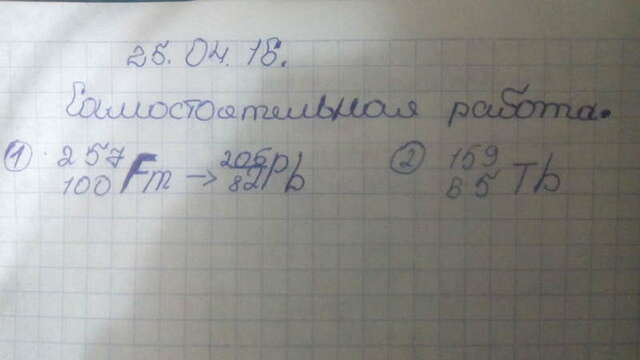 25.04.16.
Самостоятельная работа.
① 257 100 Fm → 206 82 Pb ② 159 65 Tb